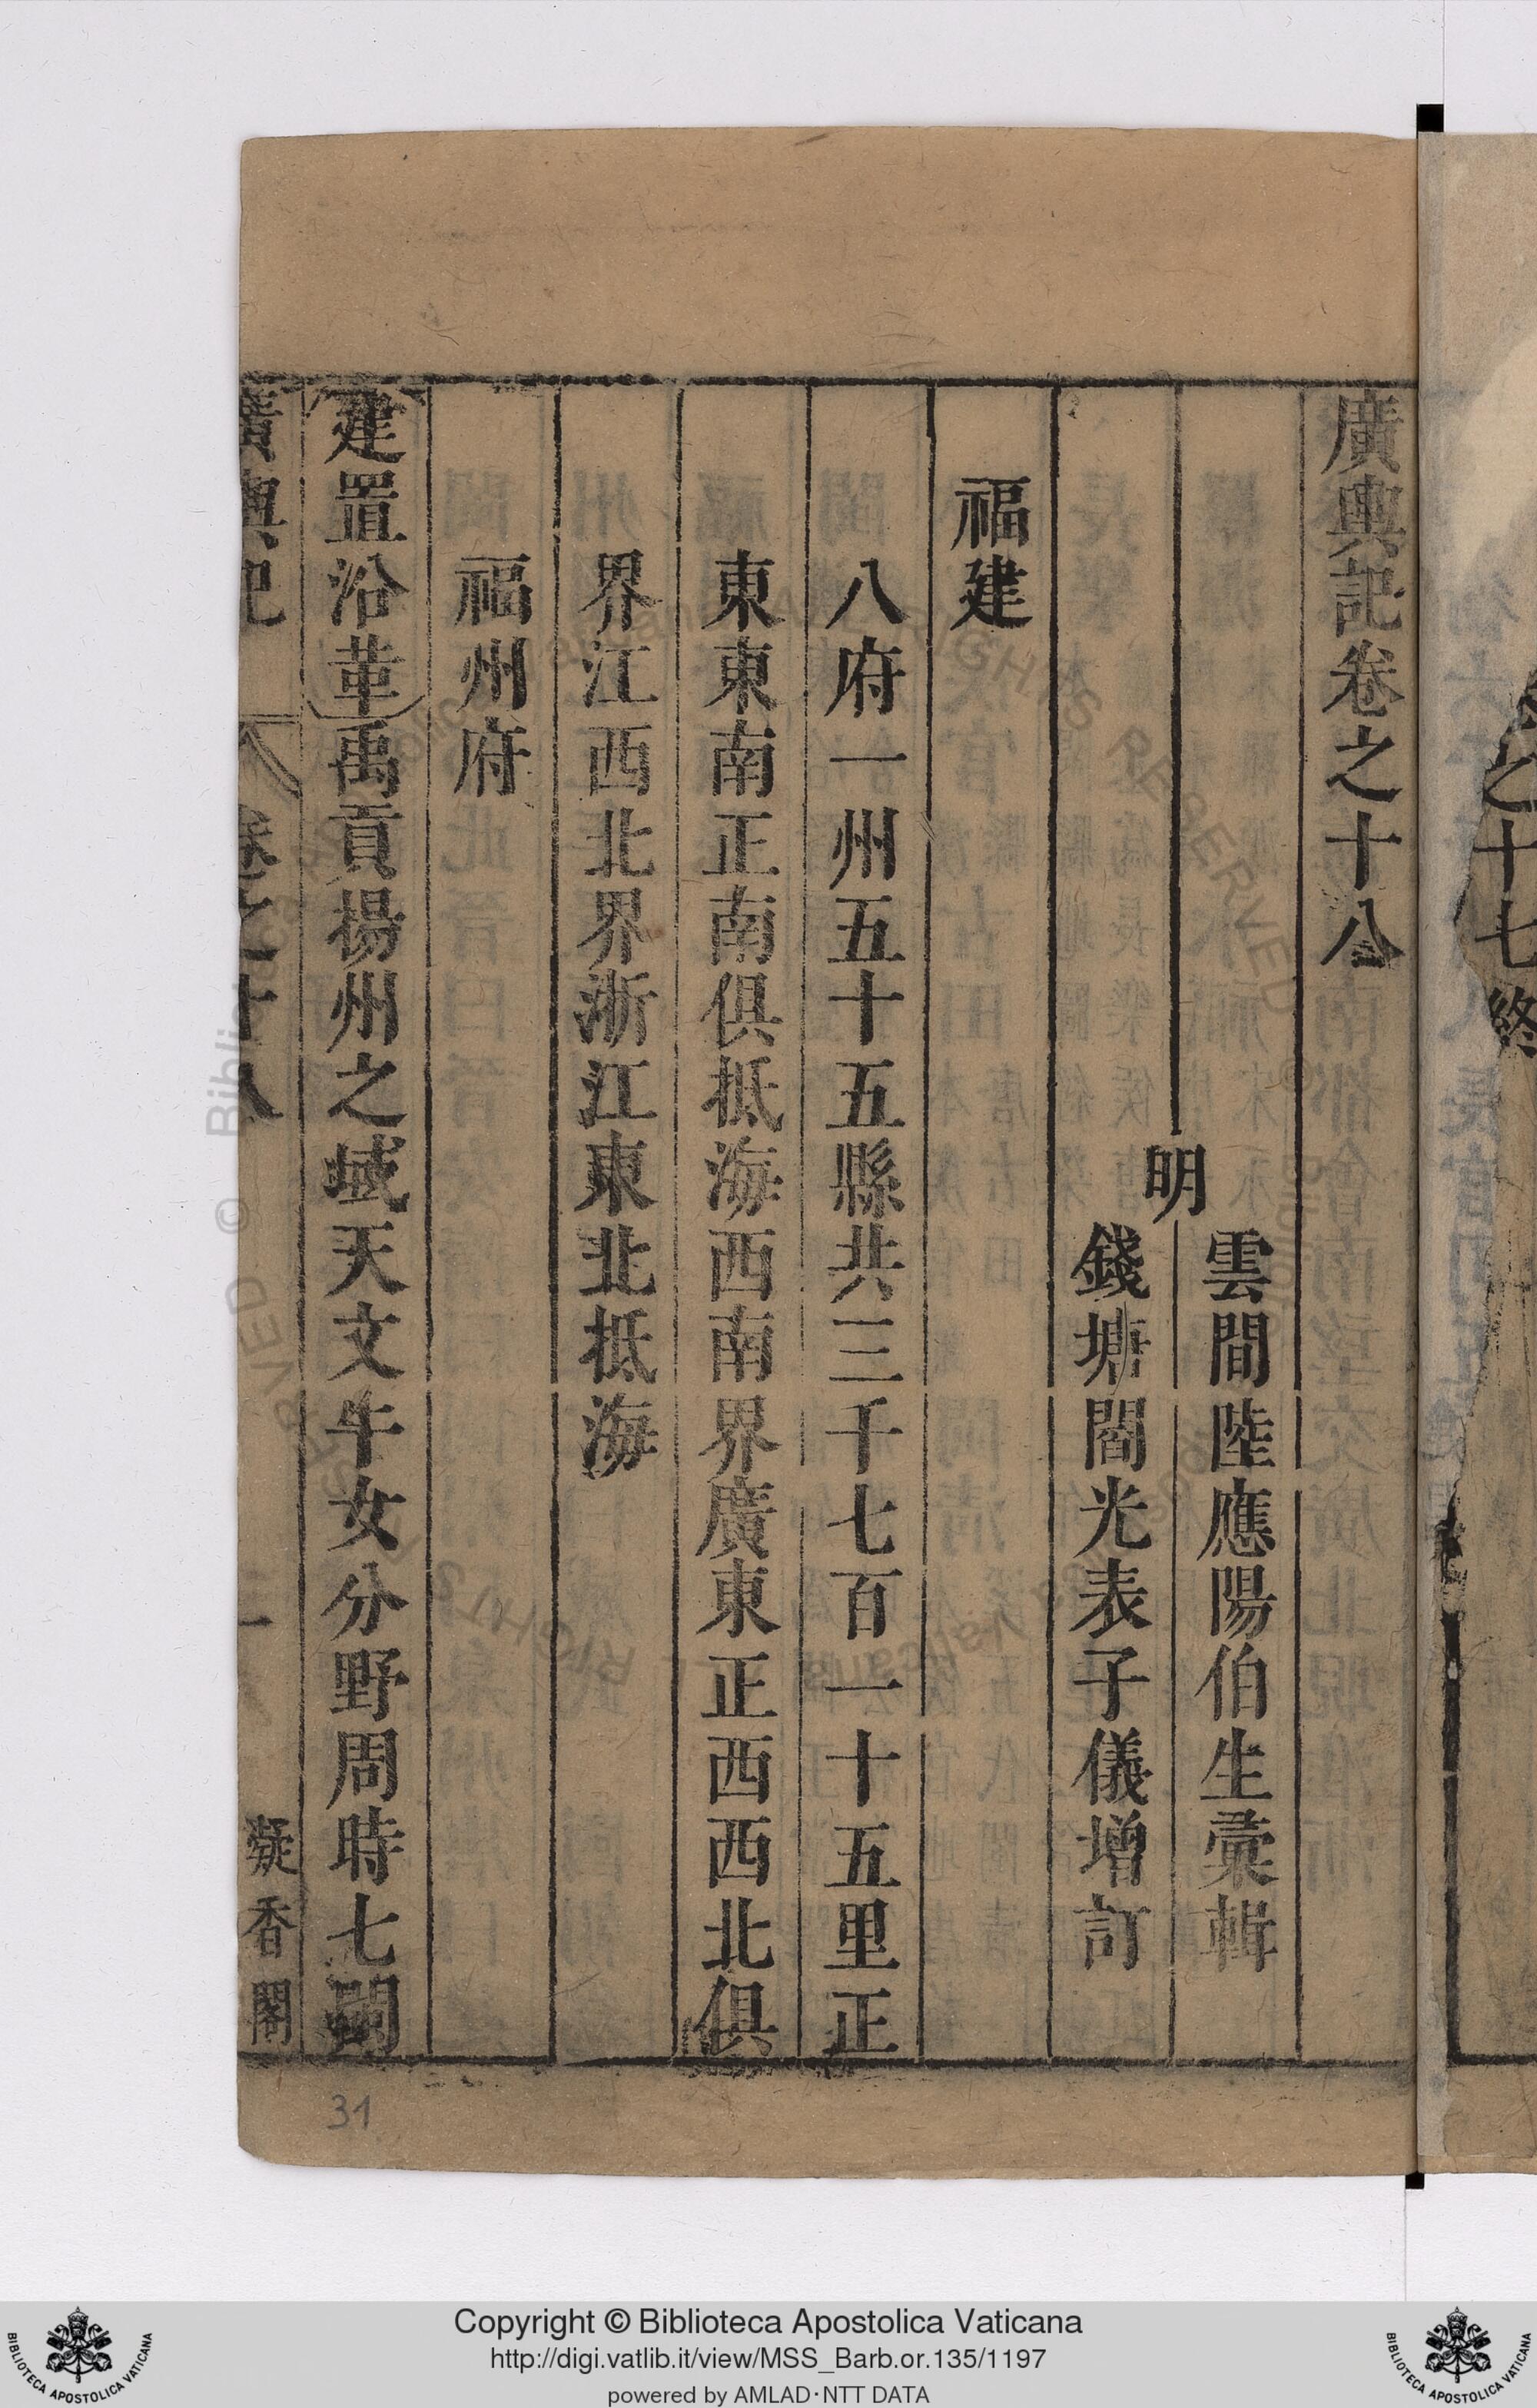 之十七終
廣輿記卷之十八
明
雲間陸應陽伯生彙輯
錢塘閻光表子儀增訂
福建
八府一州五十五縣共三千七百一十五里正
東東南正南俱抵海西南界廣東正西西北俱
界江西北界浙江東北抵海
福州府
建置沿革禹貢揚州之域天文牛女分野周時七閩
廣輿記
卷之十八
一
凝香閣
31
Copyright © Biblioteca Apostolica Vaticana
http://digi.vatlib.it/view/MSS_Barb.or.135/1197
powered by AMLAD·NTT DATA
BIBLIOTECA APOSTOLICA VATICANA
BIBLIOTECA APOSTOLICA VATICANA